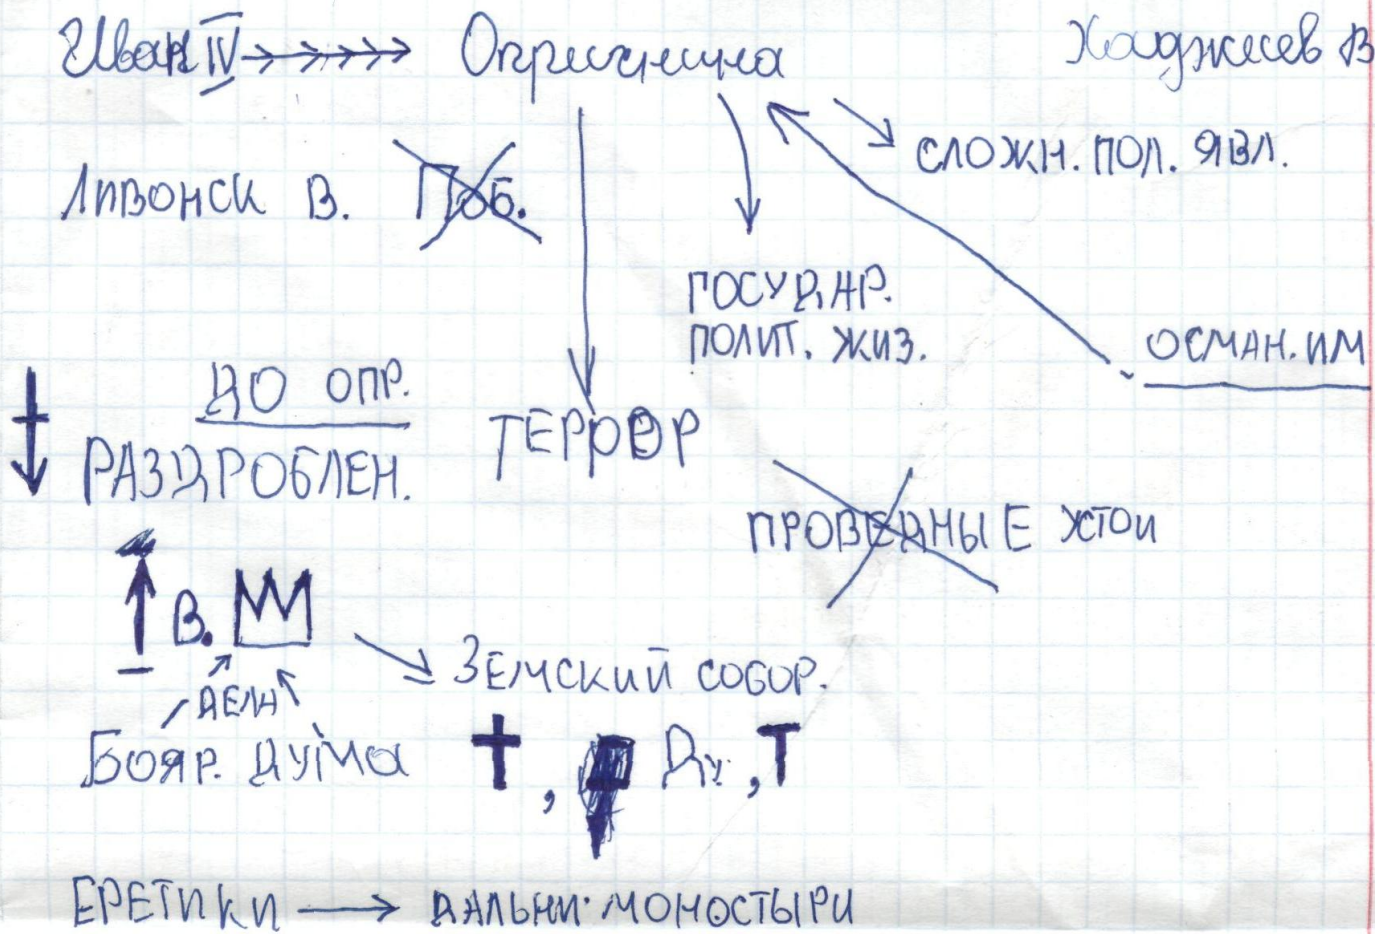 Иван IV Опричнина Хаджиев В
СЛОЖН. ПОЛ. ЯВЛ.
ЛИВОНСК В. ПОБ.
ГОСУДАР.
ПОЛИТ. ЖИЗ.
ОСМАН. ИМ
ДО ОПР.
РАЗДРОБЛЕН.
ТЕРРОР
В.
ЗЕМСКИЙ СОБОР.
ДЕЛА
БОЯР. ДУМА
Т, Ду, Т
ЕРЕТИКИ ДАЛЬНИ. МОНОСТЫРИ